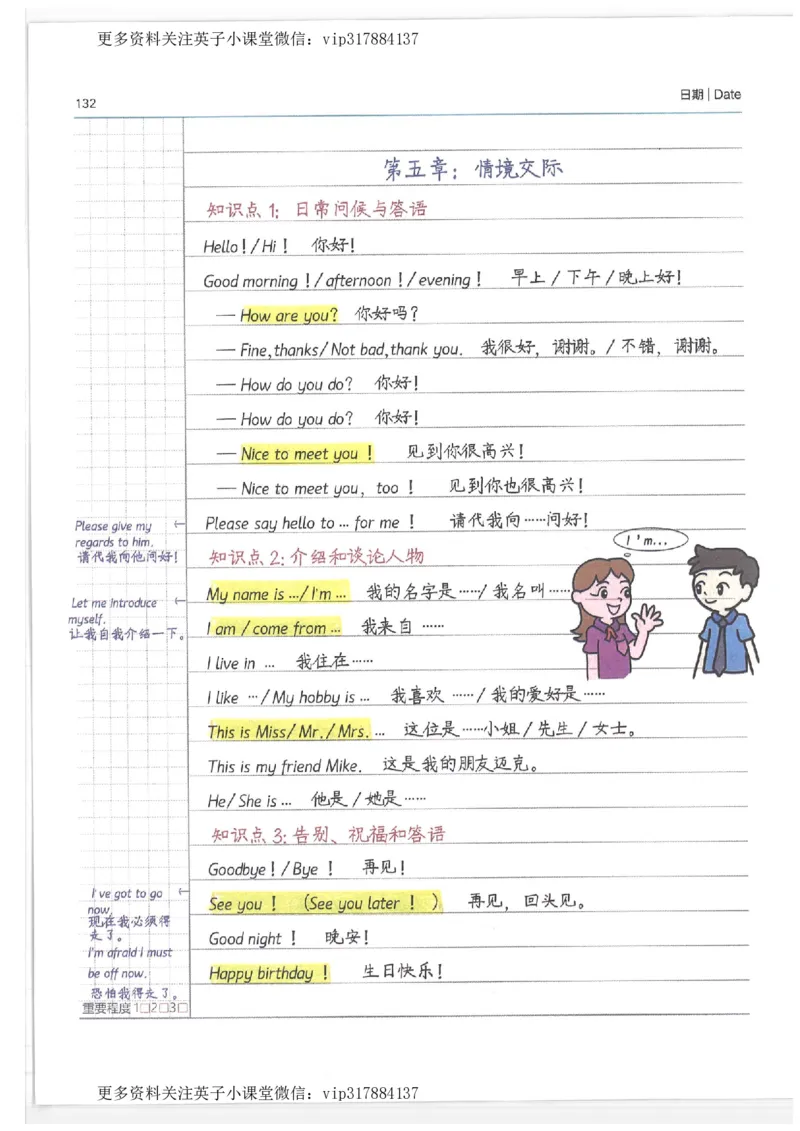 更多资料关注英子小课堂微信：vip317884137
132
日期 | Date
第五章：情境交际
知识点 1：日常问候与答语
Hello！/ Hi！ 你好！
Good morning！/ afternoon！/ evening！ 早上 / 下午 / 晚上好！
— How are you? 你好吗？
— Fine, thanks/ Not bad, thank you. 我很好，谢谢。/ 不错，谢谢。
— How do you do? 你好！
— How do you do? 你好！
— Nice to meet you！ 见到你很高兴！
— Nice to meet you, too！ 见到你也很高兴！
Please say hello to … for me！ 请代我向……问好！
Please give my ←
regards to him.
请代我向他问好！
知识点 2：介绍和谈论人物
I'm...
My name is .../ I'm ... 我的名字是……/ 我名叫……
Let me introduce ←
myself.
让我自我介绍一下。
I am / come from ... 我来自 ……
I live in ... 我住在……
I like …/ My hobby is ... 我喜欢 ……/ 我的爱好是……
This is Miss/ Mr./ Mrs. ... 这位是……小姐 / 先生 / 女士。
This is my friend Mike. 这是我的朋友迈克。
He/ She is ... 他是 / 她是……
知识点 3：告别、祝福和答语
Goodbye！/ Bye！ 再见！
I've got to go ←
now.
现在我必须得
走了。
I'm afraid I must
be off now.
恐怕我得走了。
See you！ （See you later！ ） 再见，回头见。
Good night！ 晚安！
Happy birthday！ 生日快乐！
重要程度 1□2□3□
更多资料关注英子小课堂微信：vip317884137